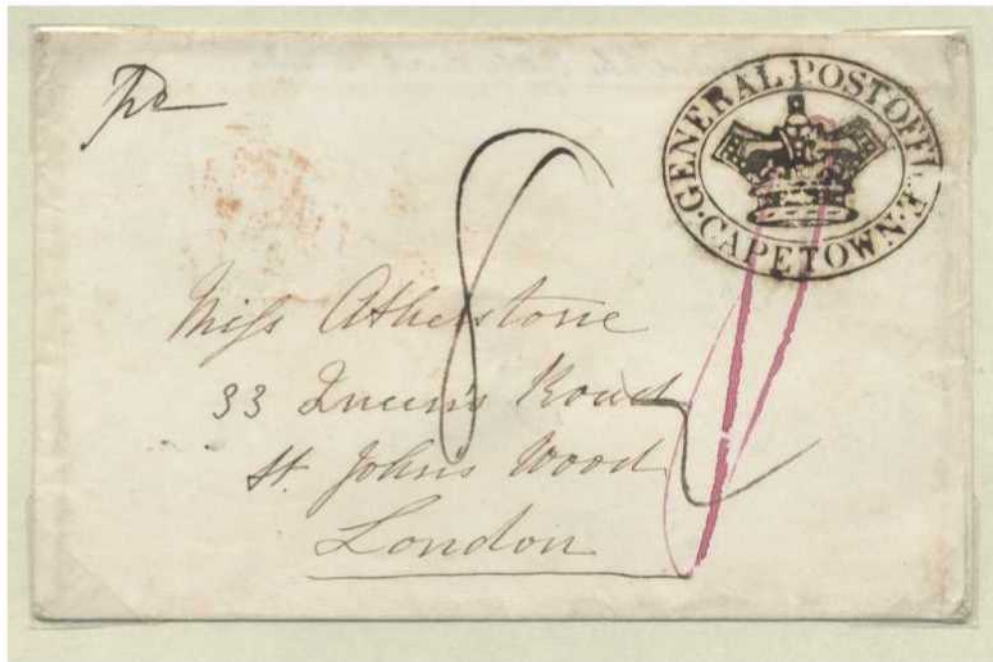 pd
GENERAL POST OFFICE
CAPETOWN
8
Miss Atherstone
33 Queen's Road
St. John's Wood
London